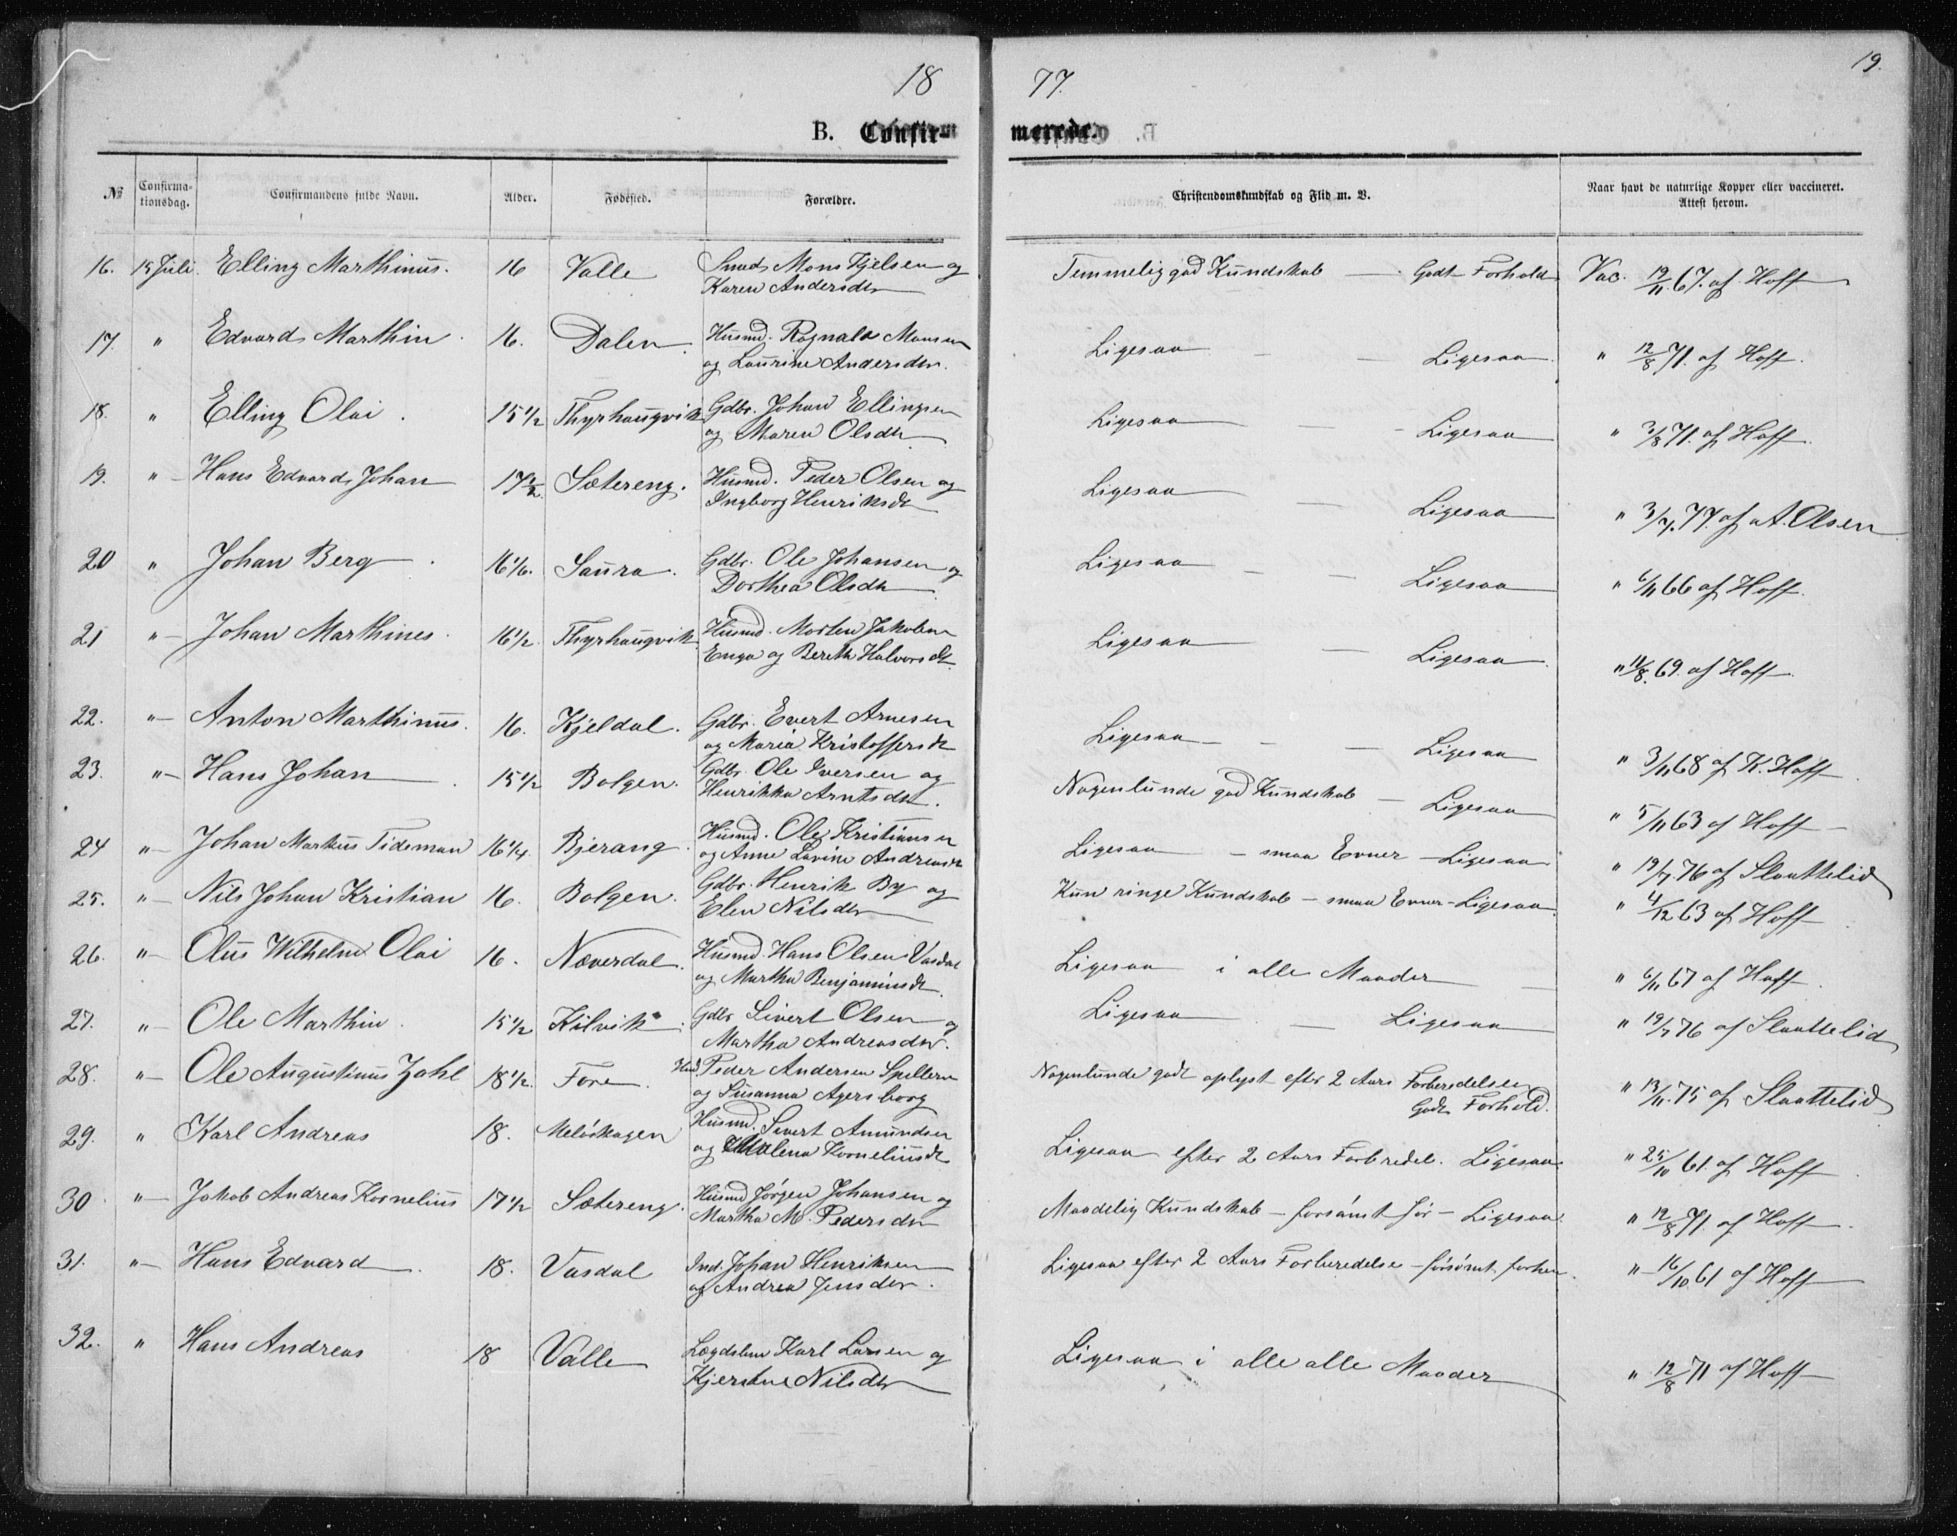 18 77. 19.
B. Confir- merede.
№ Confirma-tionsdag. Confirmandens fulde Navn. Alder. Fødested. Forældre. Christendomskundskab og Flid m. V. Naar havt de naturlige Kopper eller vaccineret. Attest herom.
16. 15 Juli. Elling Marthinus. 16 Valle Mons Kjelsen og Temmelig god Kundskab — Godt Forhold Vac. 19/11 67. af Hoff
Karen Andersdtr
17. " Edvard Marthin. 16. Dalen. Husmd. Rognald Monsen Ligesaa — — Ligesaa. " 12/8 71. af Hoff.
og Laurine Andersdtr.
18. " Elling Olai. 15 1/2 Thyrhaugvik Gdbr. Johan Ellingsen Ligesaa — - Ligesaa " 3/8 71. af Hoff.
og Maren Olsdtr
19. " Hans Edvard Johan 17 1/2. Sætereng. Husmd. Peder Olsen og Ligesaa — Ligesaa " 3/7. 77. af A. Olsen
Ingborg Henriksdtr
20 " Johan Berg. 16 1/6. Saura. Gdbr. Ole Johansen og Ligesaa — — Ligesaa " 6/11 66 af Hoff.
Dorthea Olsdtr
21 " Johan Marthines. 16 1/2. Thyrhaugvik. Husmd. Morten Jakobsen Ligesaa — Ligesaa. " 11/8. 69. af Hoff.
Enga og Bereth Halvorsdtr.
22. " Anton Marthinus. 16. Kjeldal. Gdbr. Evert Arnesen Ligesaa - - — Ligesaa " 3/11 68 af K. Hoff
og Maria Kristoffersdtr
23. " Hans Johan. 15 1/2 Bolgen. Gdbr. Ole Iversen og Nogenlunde god Kundskab — Ligesaa " 5/11 63 af Hoff
Henrikka Arntsdtr.
24 " Johan Markus Tideman 16 1/4. Bjerang. Husmd. Ole Kristiansen Ligesaa — smaa Evner — Ligesaa " 19/7 76 af Slaattelid
og Anne Lavine Andreasdtr
25. " Nils Johan Kristian 16. Bolgen. Gdbr. Henrik By og Kun ringe Kundskab — smaa Evner — Ligesaa. " 4/12 63 af Hoff
Elen Nilsdtr
26. " Olus Wilhelm Olai 16. Næverdal. Husmd. Hans Olsen Vasdal Ligesaa i alle Maader — " 6/11 67 af Hoff.
og Martha Benjaminsdtr.
27. " Ole Marthin. 15 1/2 Kilvik. Gdbr Sivert Olsen og Ligesaa — Ligesaa " 19/7 76 af Slaattelid
Martha Andreasdtr.
28. " Ole Augustinus Zahl 18 1/2. Fore. Peder Andersen Spillern Nogenlunde godt oplyst efter 2 Aars Forberedelsen " 13/11. 75 af Slaattelid
og Susanna Agersborg Godt Forhold.
29. " Karl Andreas 18. Meløskagen Husmd. Sivert Amundsen Ligesaa efter 2 Aars Forbredel. Ligesaa " 25/11 61. af Hoff
og Malena Korneliusdtr
30 " Jakob Andreas Kornelius 17 1/2 Sætereng. Husmd Jørgen Johansen og Maadelig Kundskab — forsømt før — Ligesaa. " 12/8 71. af Hoff.
Martha M. Pedersdtr
31. " Hans Edvard. 18. Vasdal Ind. Johan Henriksen Ligesaa efter 2 Aars Forberedelse — forsømt forhen. " 16/10. 61 af Hoff
og Andrea Jensdtr.
32. " Hans Andreas 18 Valle Lægdslem Karl Larsen og Ligesaa i alle alle Maader " 12/8 71 af Hoff
Kjerstine Nilsdtr